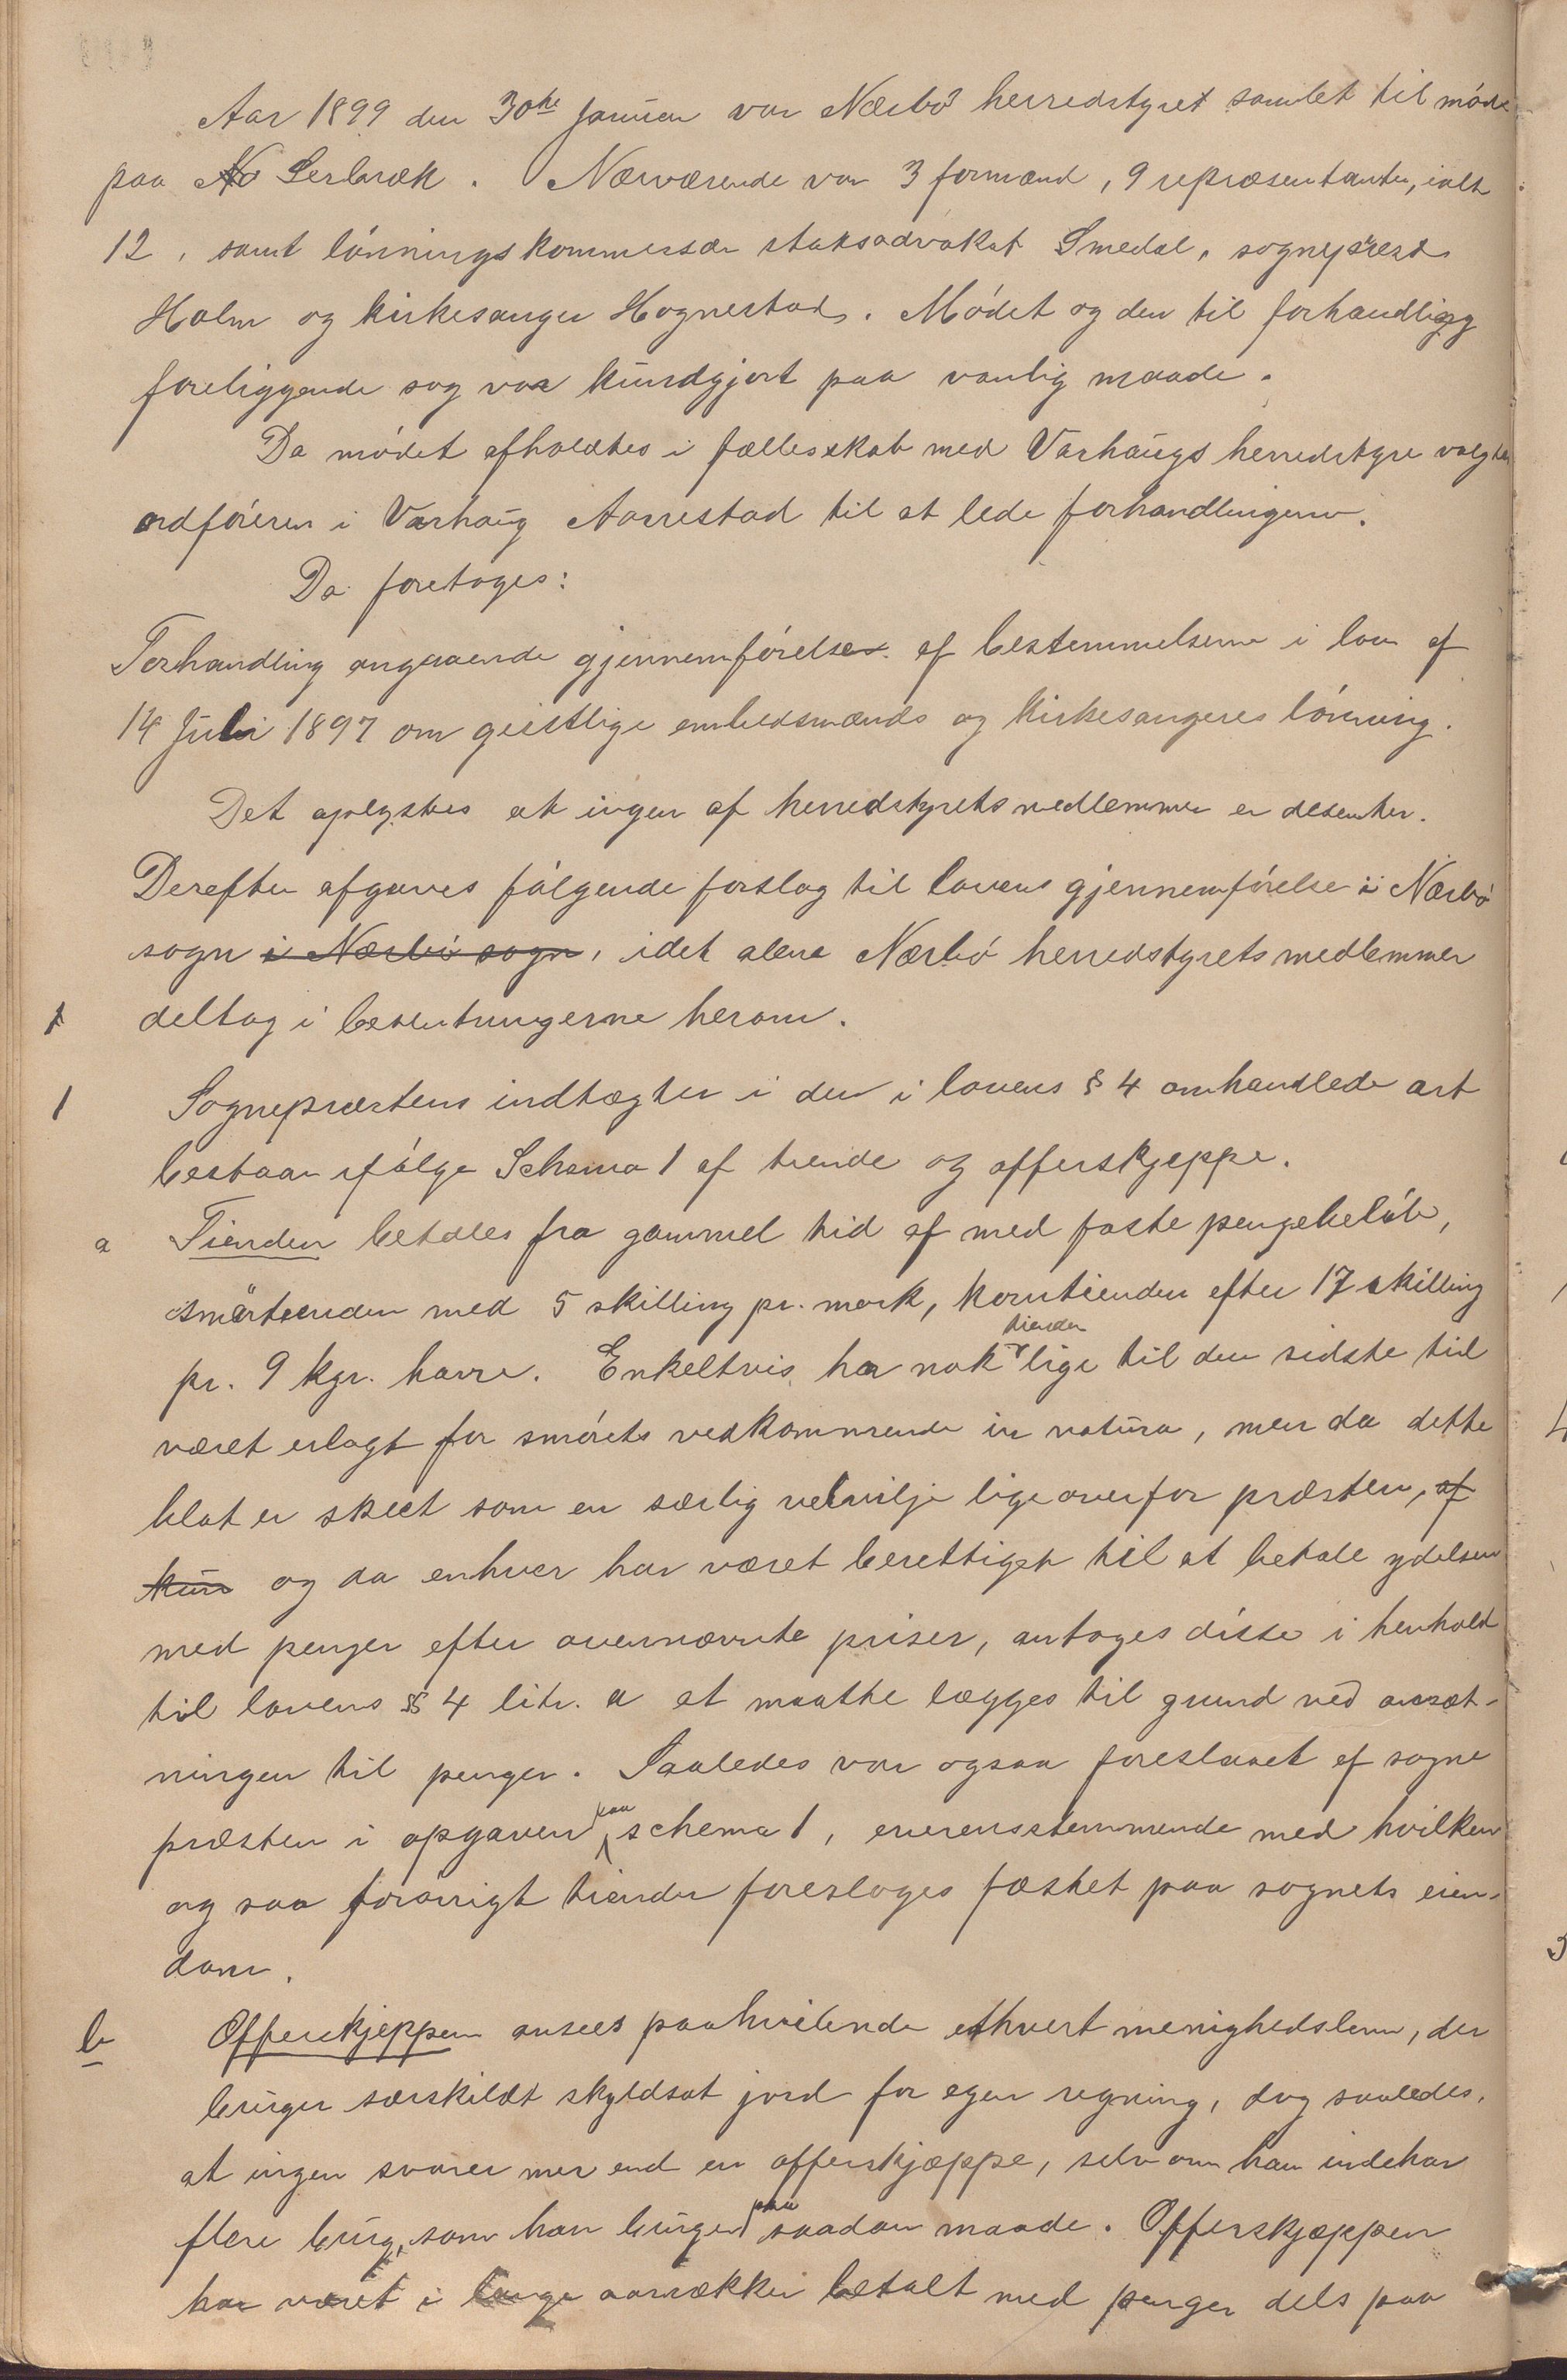 Aar 1899 den 30te Januar var Nærbø herredstyret samlet til møde
paa No Serbræk. Nærværende var 3 formænd, 9 repræsentanter, ialt
12, samt lønningskommersær statsadvokat Smedal, sogneprest
Holm og kirkesanger Hognestad. Mødet og den til forhandling
foreliggende sag var kundgjort paa vanlig maade.
Da mødet afholdtes i fællesskab med Varhaugs herredstyre valgtes
ordføreren i Varhaug Aarrestad til at lede forhandlingerne.
Da foretoges:
Forhandling angaaende gjennemførelsen af bestemmelserne i lov af
14 Juli 1897 om geistlige embedsmænds og kirkesangeres lønning.
Det oplystes at ingen af herredstyrets medlemmer er desenter.
Derefter afgaves følgende forslag til lovens gjennemførelse i Nærbø
sogn i Nærbø sogn, idet alene Nærbø herredstyrets medlemmer
deltog i beslutningerne herom.
1 Sogneprestens indtægter i den i lovens § 4 omhandlede art
bestaar ifølge Schema 1 af tiende og offerskjeppe.
a Tienden betales fra gammel tid af med faste pengebeløb,
smørtienden med 5 skilling pr. mark, korntienden efter 17 skilling
pr. 9 kgr. havre. Enkeltvis har nok tienden lige til den sidste tid
været erlagt for smørets vedkommende in natura, men da dette
blot er skeet som en særlig velvilje ligeoverfor præsten, af
kun og da enhver har været berettiget til at betale ydelsen
med penger efter ovennævnte priser, antoges disse i henhold
til lovens § 4 litr. a at maatte lægges til grund ved ansæt-
ningen til penger. Saaledes var ogsaa foreslaaet af sogne
præsten i opgaven paa schema 1, overensstemmende med hvilken
og saa forøvrigt tienden foresloges fæstet paa sognets eien-
dom.
b Offerskjeppen ansees paahvilende ethvert menighedslem, der
bruger særskildt skyldsat jord for egen regning, dog saaledes,
at ingen svarer mer end en offerskjæppe, selv om han indehar
flere brug, som han bruger paa saadan maade. Offerskjæppen
har været i lange aarrækker betalt med penger dels paa